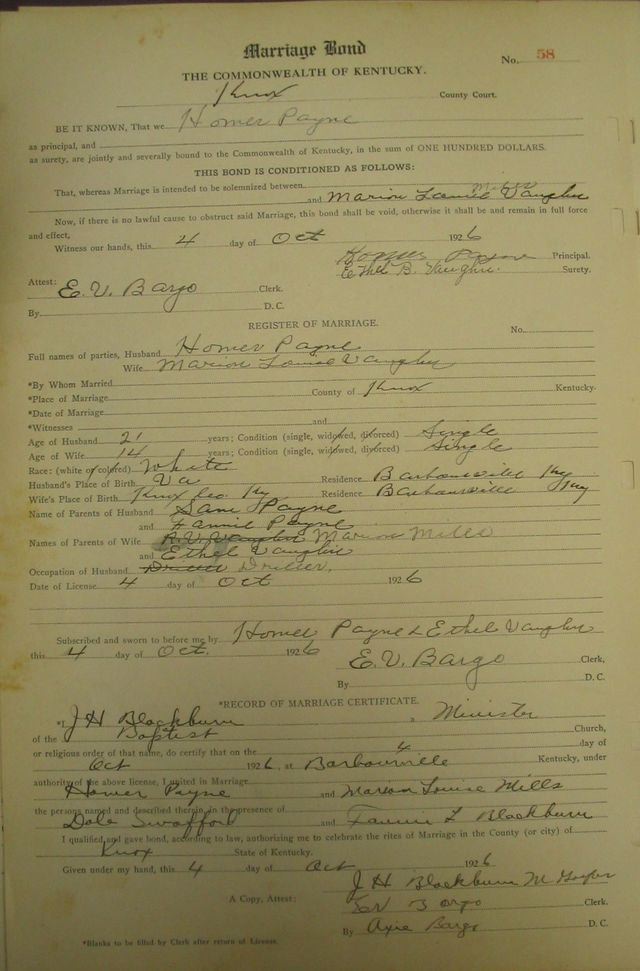 Marriage Bond
No. 58
THE COMMONWEALTH OF KENTUCKY.
Knox County Court.
BE IT KNOWN, That we Homer Payne
as principal, and
as surety, are jointly and severally bound to the Commonwealth of Kentucky, in the sum of ONE HUNDRED DOLLARS.
THIS BOND IS CONDITIONED AS FOLLOWS:
That, whereas Marriage is intended to be solemnized between
and Marion Louise Vaughn
Now, if there is no lawful cause to obstruct said Marriage, this bond shall be void, otherwise it shall be and remain in full force
and effect,
Witness our hands, this 4 day of Oct 1926
Homer Payne Principal.
Ethel B. Vaughn. Surety.
Attest: E. V. Bargo Clerk.
By D. C.
REGISTER OF MARRIAGE.
No.
Full names of parties, Husband Homer Payne
Wife Marion Louise Vaughn
*By Whom Married
*Place of Marriage County of Knox Kentucky.
*Date of Marriage
*Witnesses and
Age of Husband 21 years; Condition (single, widowed, divorced) Single
Age of Wife 14 years; Condition (single, widowed, divorced) Single
Race: (white or colored) White
Husband's Place of Birth Va Residence Barbourville Ky
Wife's Place of Birth Knox Co. Ky Residence Barbourville Ky
Name of Parents of Husband Sam Payne
and Fannie Payne
Names of Parents of Wife R. V. Vaughn Marion Mills
and Ethel Vaughn
Occupation of Husband Driller Driller.
Date of License 4 day of Oct 1926
Subscribed and sworn to before me by Homer Payne & Ethel Vaughn
this 4 day of Oct. 1926
E. V. Bargo Clerk,
By D. C.
*RECORD OF MARRIAGE CERTIFICATE.
*I, J H Blackburn, Minister
of the Baptist Church,
or religious order of that name, do certify that on the 4 day of
Oct 1926, at Barbourville Kentucky, under
authority of the above license, I united in Marriage
Homer Payne and Marion Louise Mills
the persons named and described therein, in the presence of
Dale Swafford and Fannie L Blackburn
I qualified and gave bond, according to law, authorizing me to celebrate the rites of Marriage in the County (or city) of
Knox State of Kentucky.
Given under my hand, this 4 day of Oct 1926
J H Blackburn
A Copy, Attest: EV Bargo Clerk.
By Bargo D. C.
*Blanks to be filled by Clerk after return of License.